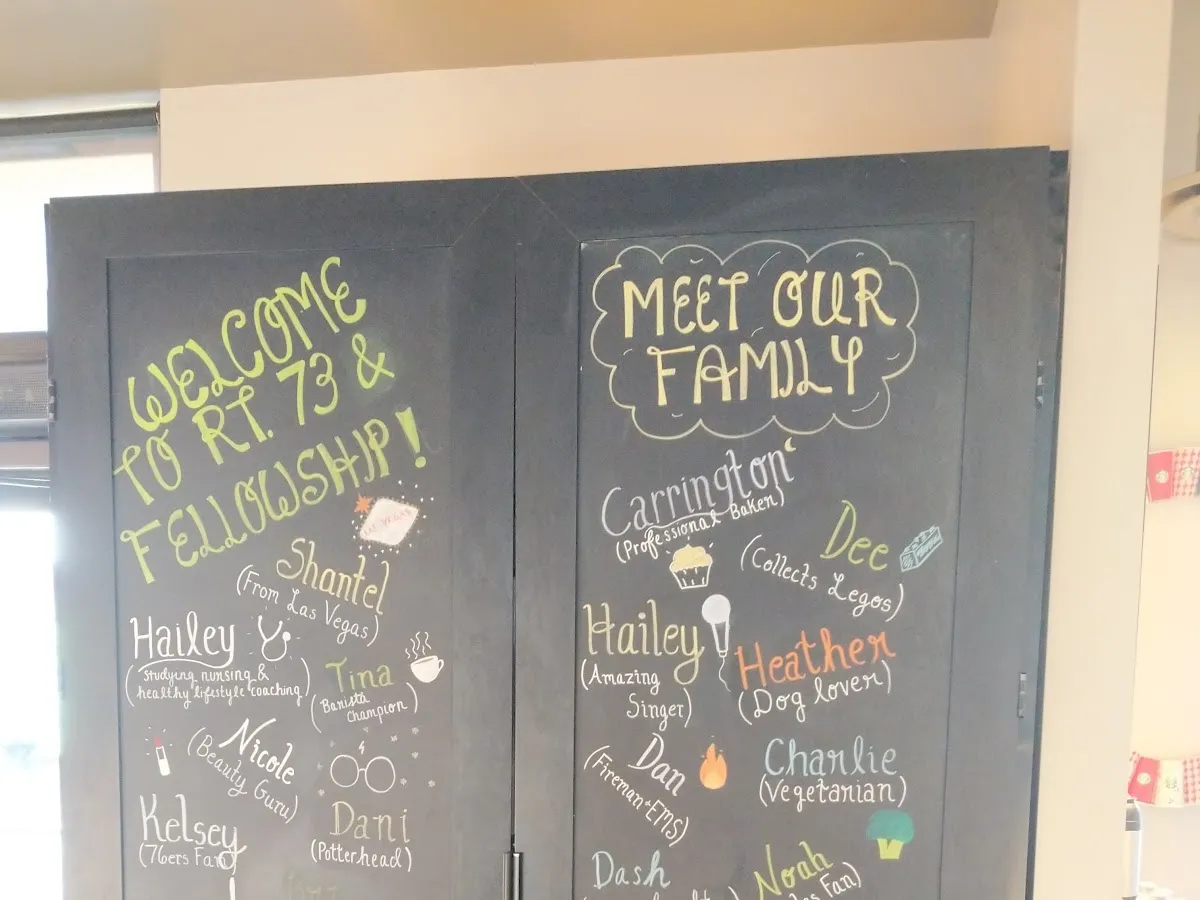 WELCOME
TO RT. 73 &
FELLOWSHIP!
LAS VEGAS
Shantel
(From Las Vegas)
Hailey
(Studying nursing &
healthy lifestyle coaching)
Tina
(Barista
Champion)
Nicole
(Beauty Guru)
Kelsey
(76ers Fan)
Dani
(Potterhead)
MEET OUR
FAMILY
Carrington
(Professional Baker)
Dee
(Collects Legos)
Hailey
(Amazing
Singer)
Heather
(Dog lover)
Dan
(Fireman+EMS)
Charlie
(Vegetarian)
Dash
Noah
Fan)